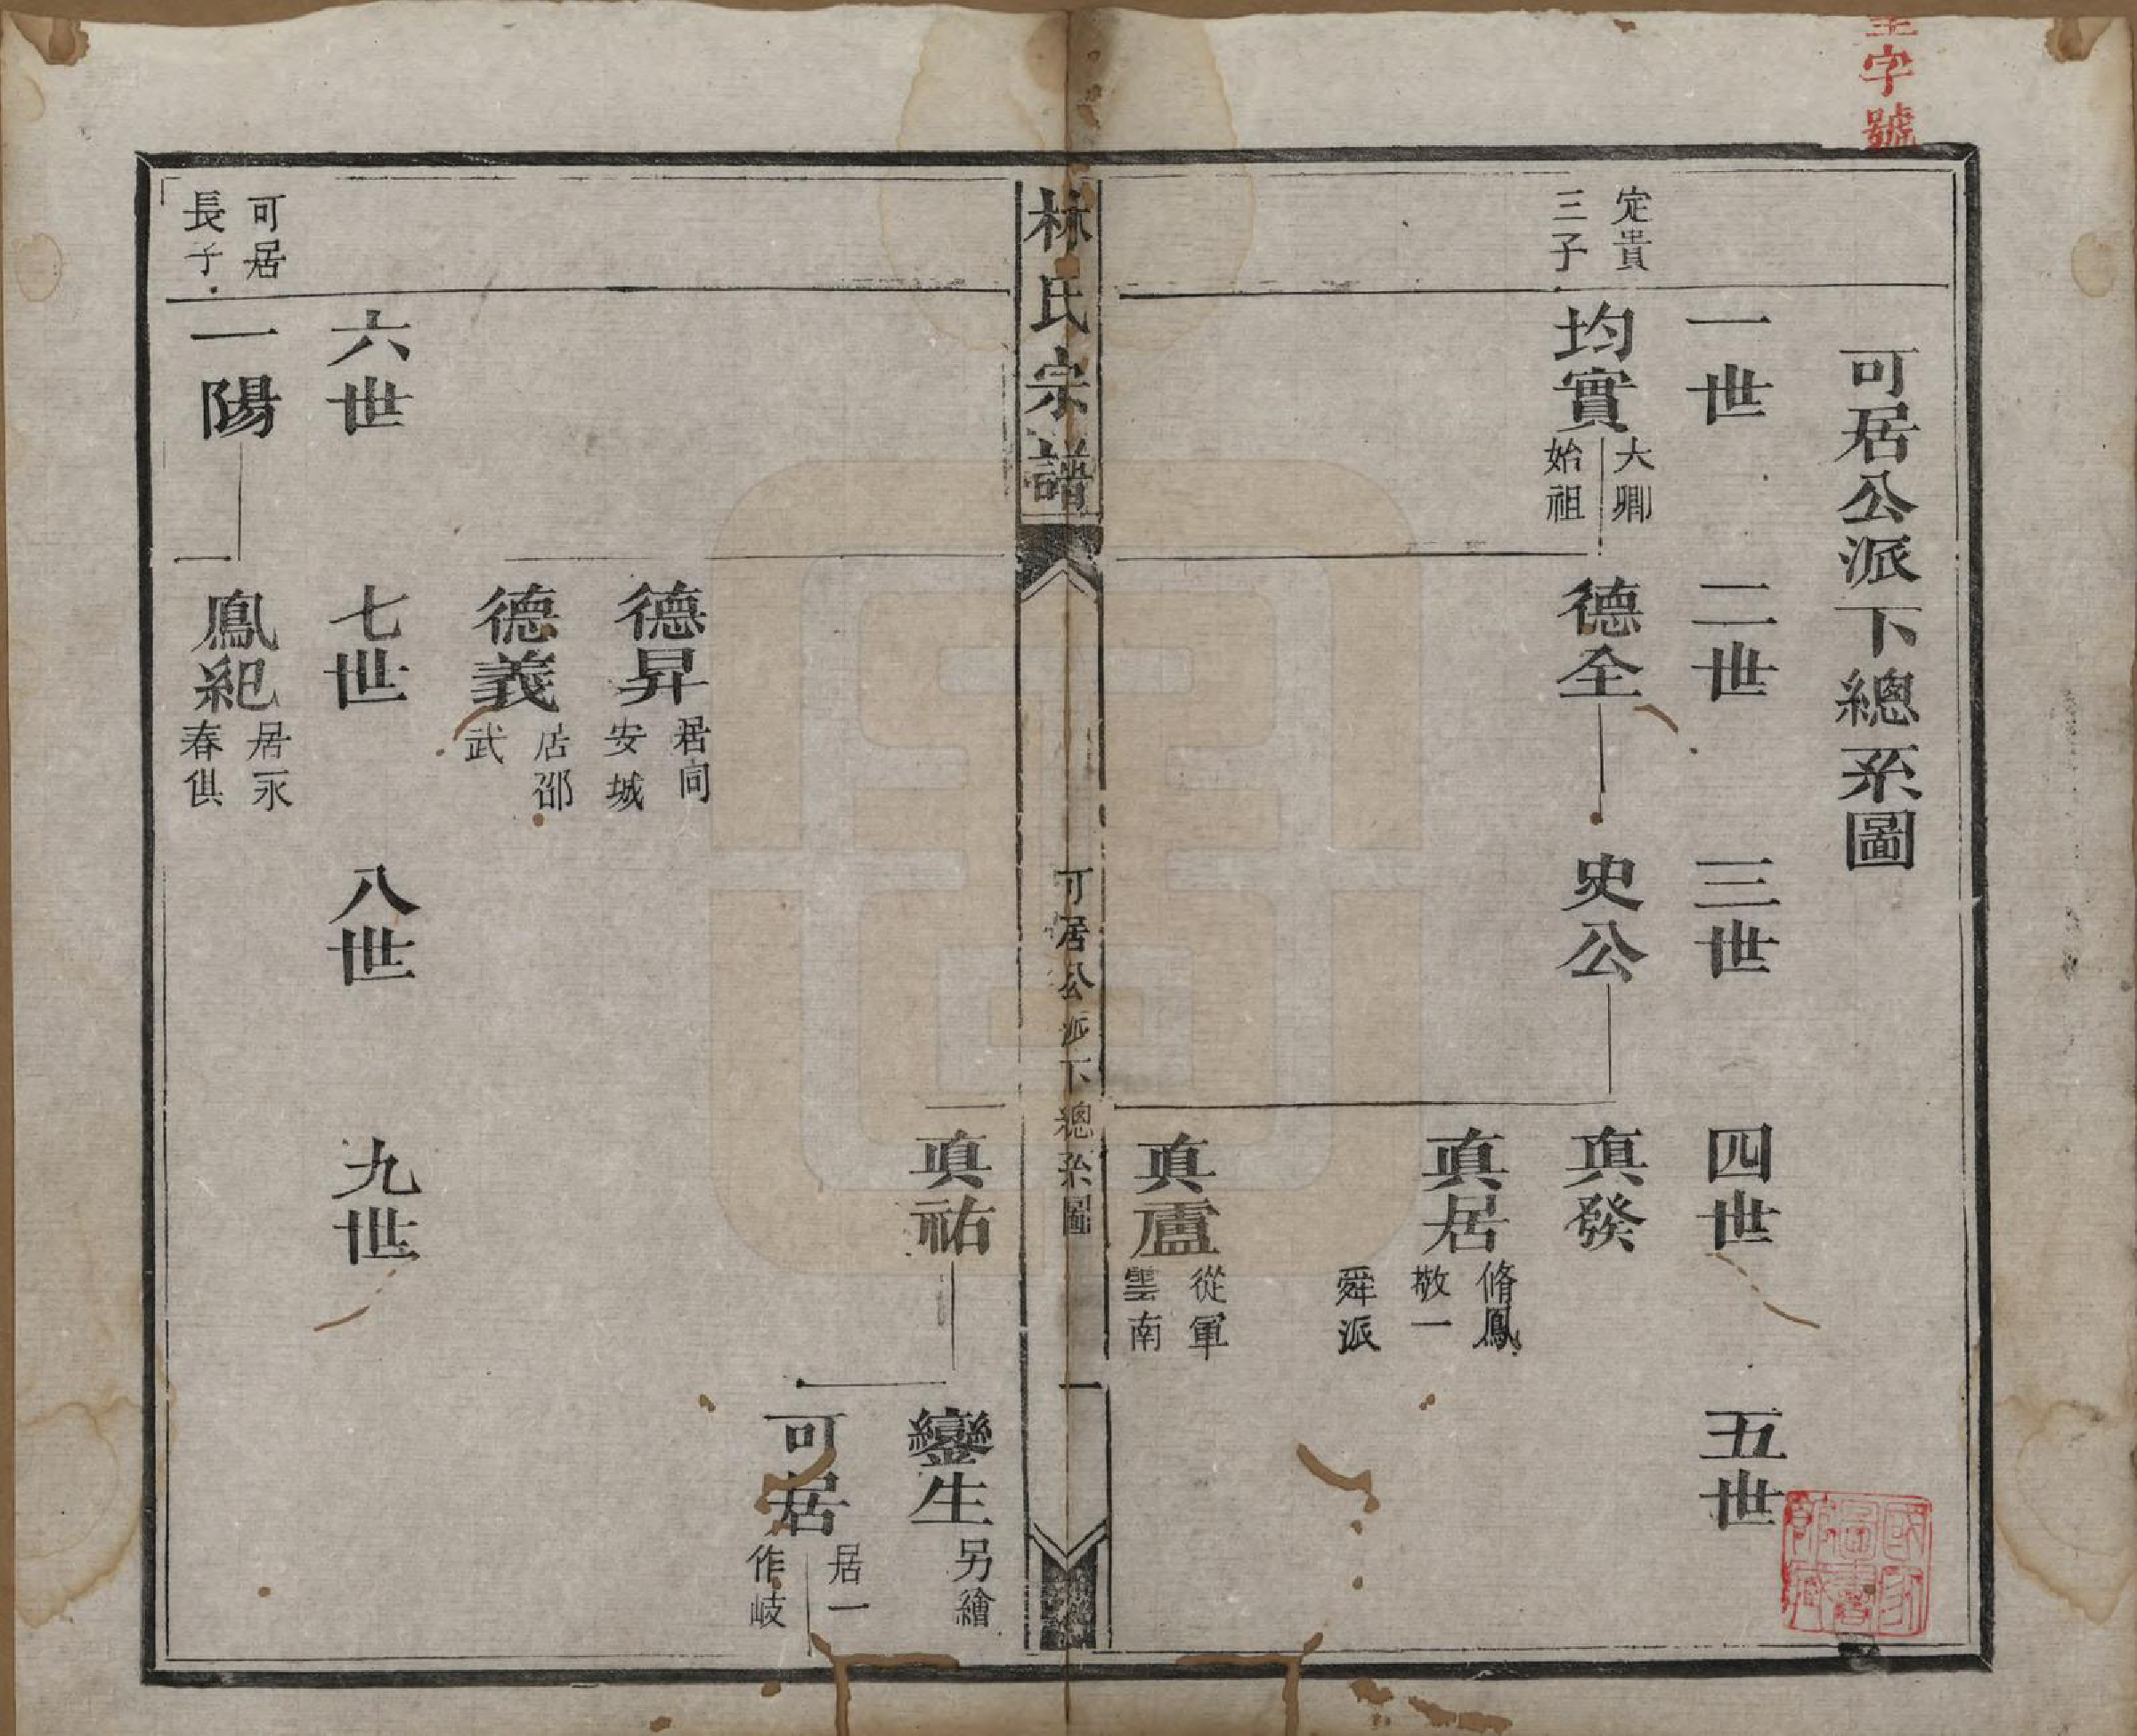 字號
可居公派下總系圖
一世
二世
三世
四世
五世
定貴
三子
均實
大卿
始祖
德全
史公
真發
真居
脩鳳
敬一
舜派
真盧
從軍
雲南
林氏宗譜
可居公派下總系圖
一
真祐
鑾生
另繪
可居
居一
作岐
德昇
居同
安城
德義
居邵
武
六世
七世
八世
九世
可居
長子
一陽
鳳紀
居永
春俱
國家
圖書
館藏